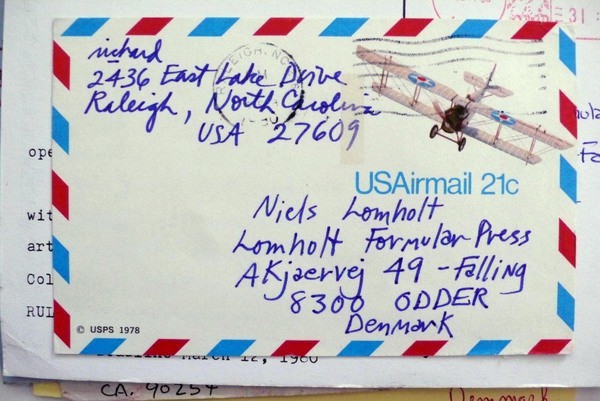 richard
2436 East Lake Drive
Raleigh, North Carolina
USA 27609
RALEIGH, NC
USAirmail 21c
Niels Lomholt
Lomholt Formular Press
AKjaervej 49 - Falling
8300 ODDER
Denmark
© USPS 1978
31
ope
wit
art
Col
RUL
March 12, 1980
CA. 90254
Denmark